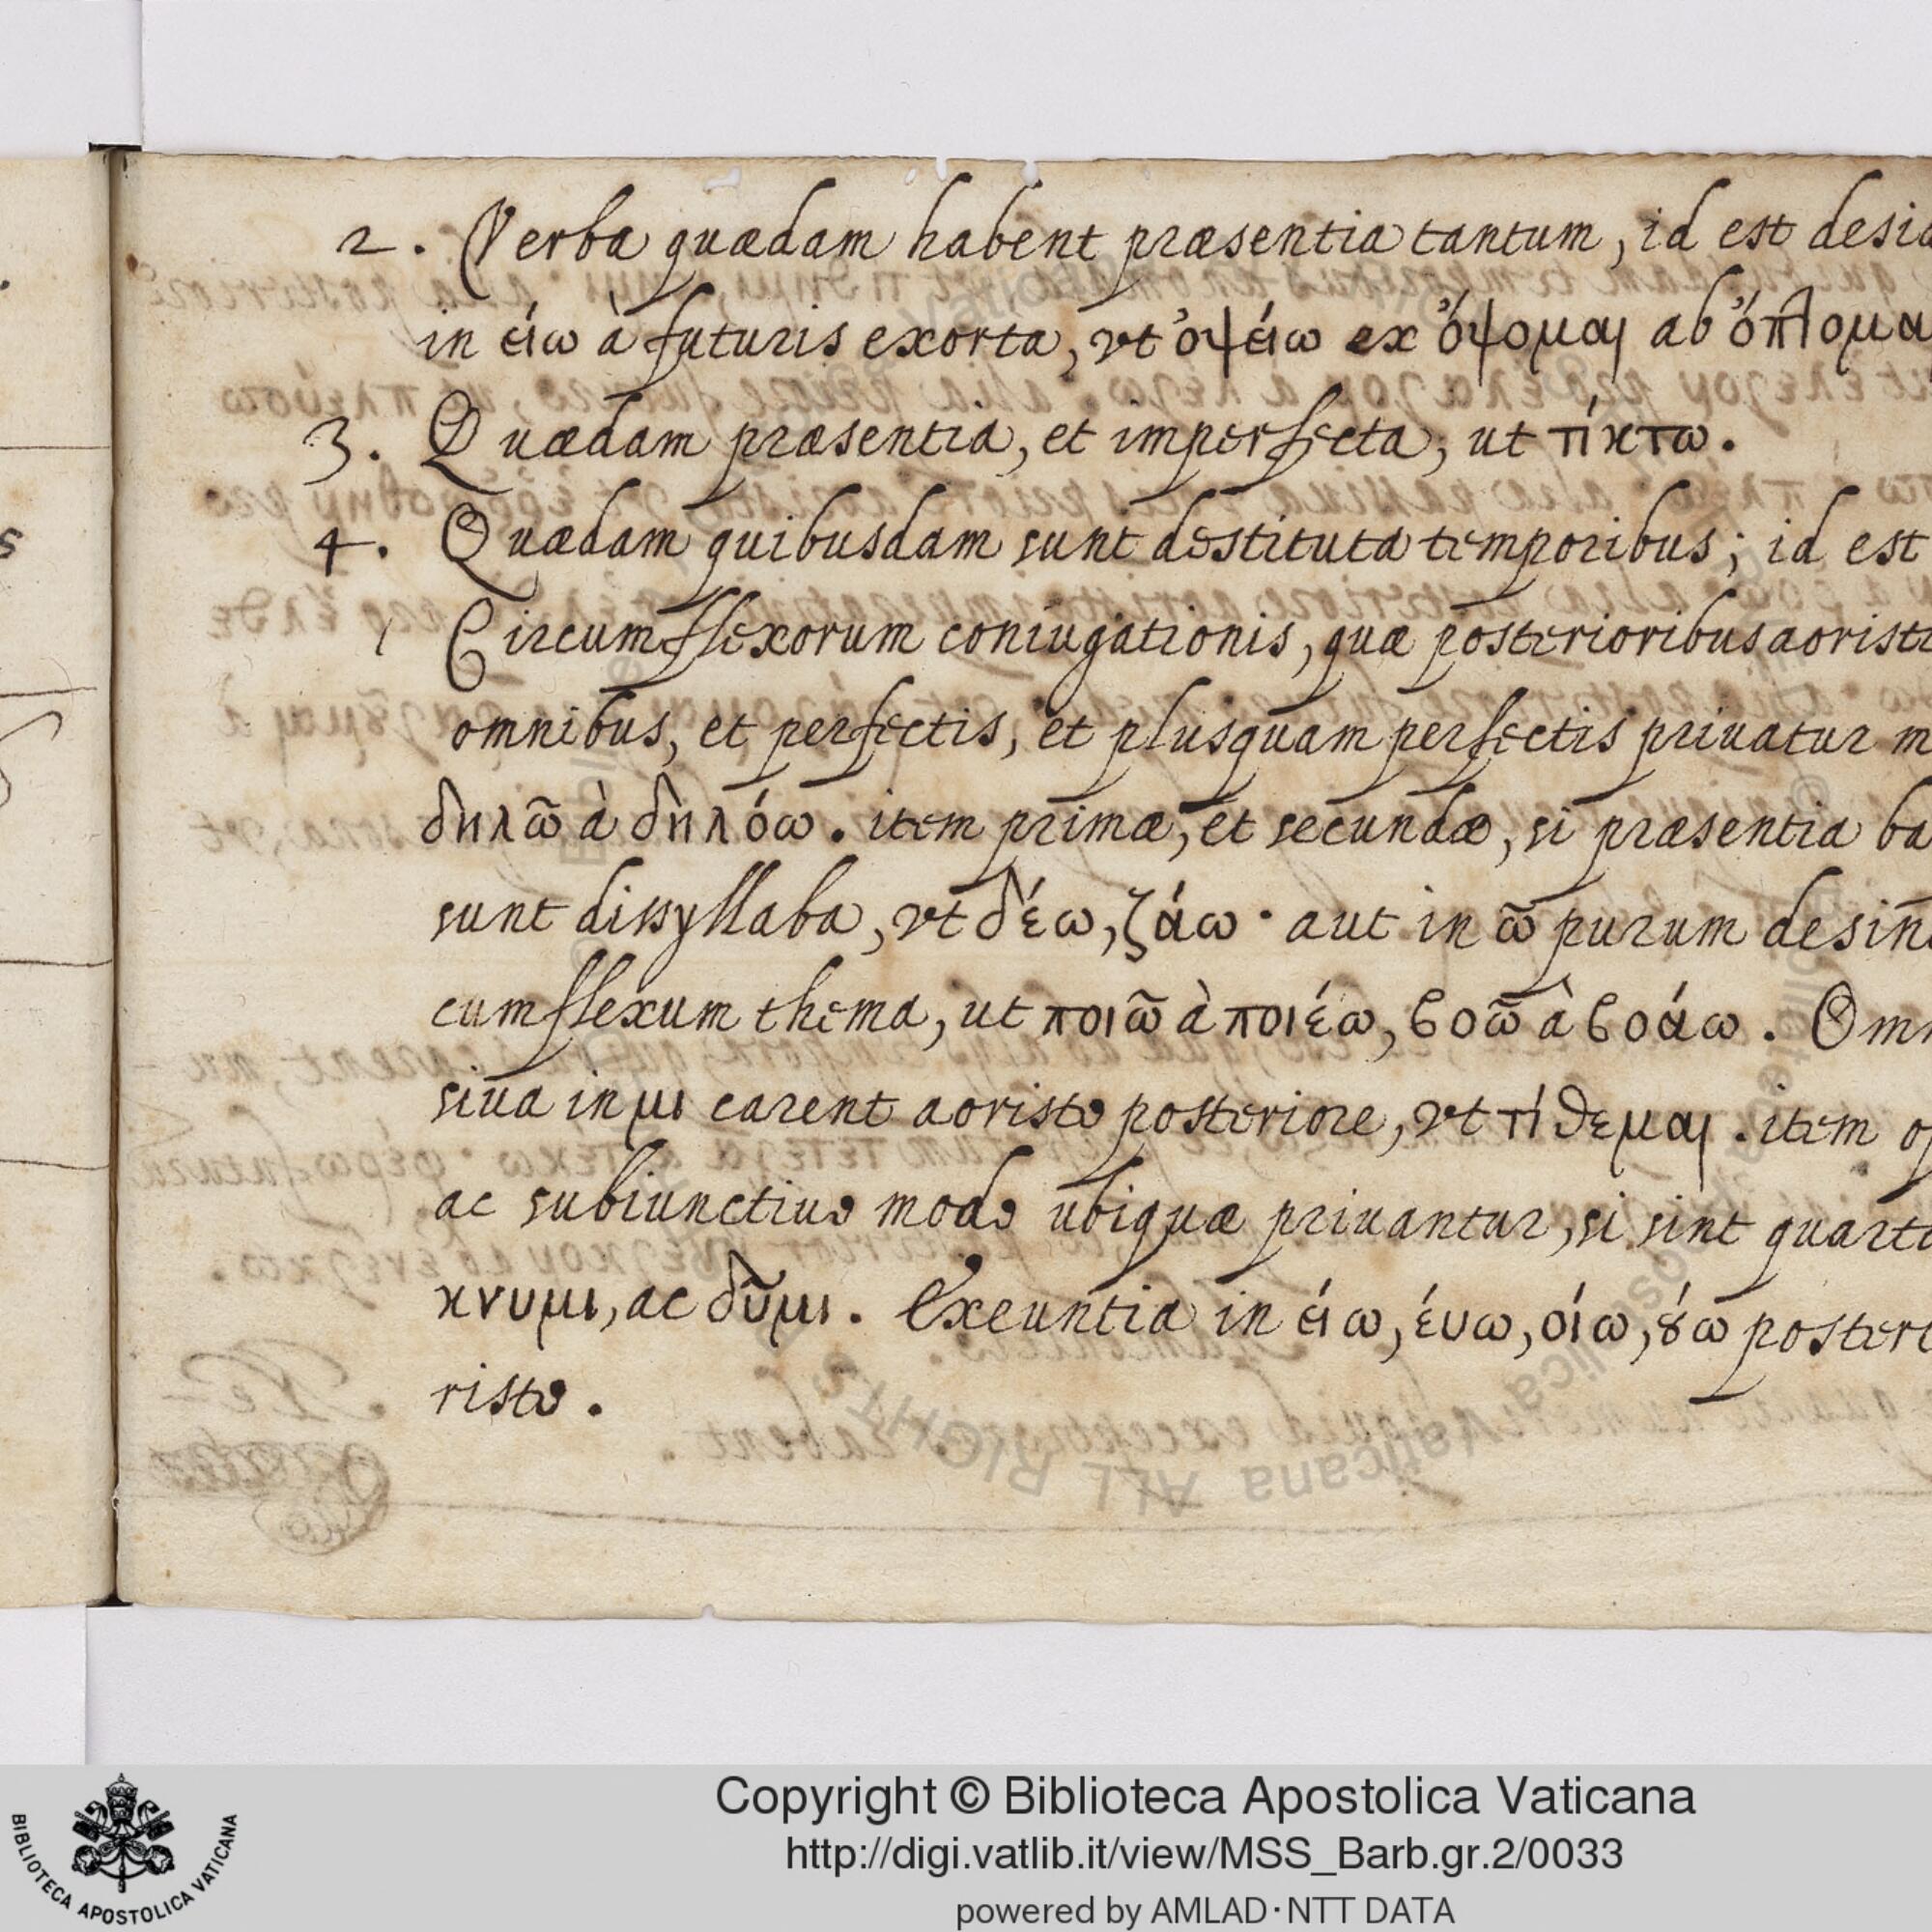 2. Verba quædam habent præsentia tantum, id est desid
in είω à futuris exorta, vt ὀψείω ex ὄψομαι ab ὄπτομα
3. Quædam præsentia, et imperfecta, ut τίκτω.
4. Quædam quibusdam sunt destituta temporibus; id est
Circumflexorum coniugationis, quæ posterioribus aoristi
omnibus, et perfectis, et plusquam perfectis priuatur m
δηλῶ à δηλόω. item primæ, et secundæ, si præsentia ba
sunt dissyllaba, vt δέω, ζάω· aut in ῶ purum desin̄
cumflexum thema, ut ποιῶ à ποιέω, βοῶ à βοάω. Omn
siua in μι carent aoristo posteriore, vt τίθεμαι. item o
ac subiunctiuo modo ubiquæ priuantur, si sint quart
κνυμι, ac δῦμι. Exeuntia in είω, έυω, οίω, ȣ́ω poster
risto.
BIBLIOTECA APOSTOLICA VATICANA
Copyright © Biblioteca Apostolica Vaticana
http://digi.vatlib.it/view/MSS_Barb.gr.2/0033
powered by AMLAD·NTT DATA